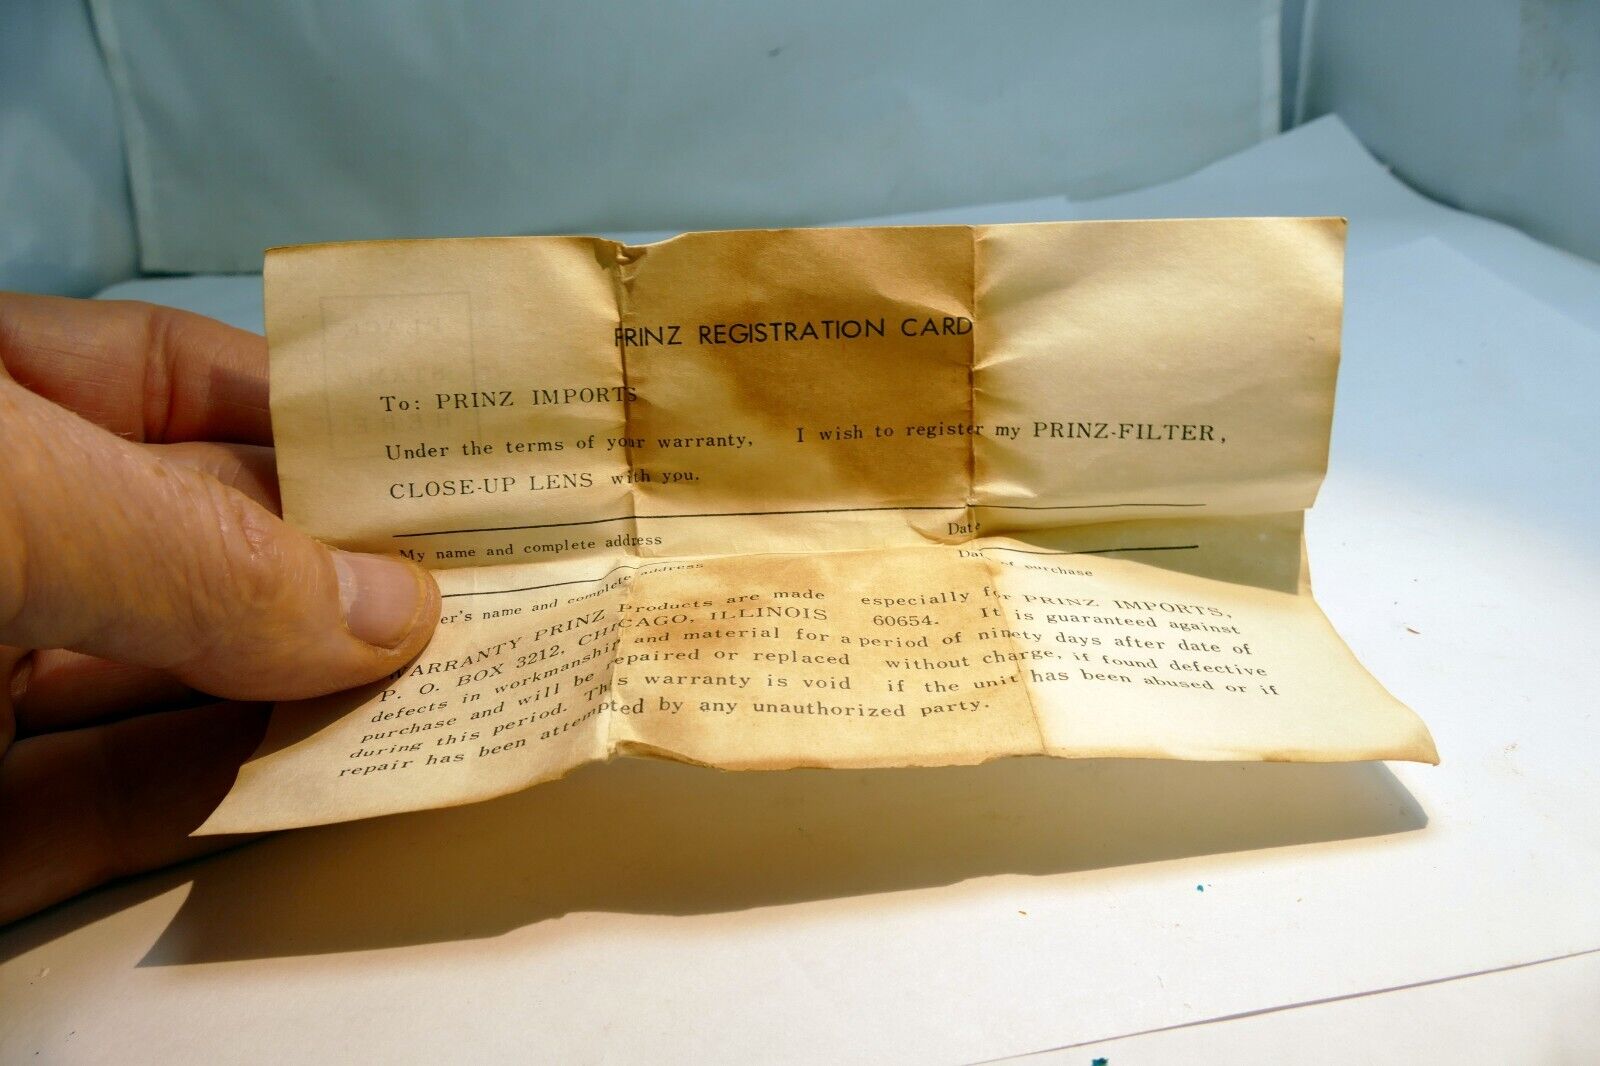 PRINZ REGISTRATION CARD
To: PRINZ IMPORTS
Under the terms of your warranty, I wish to register my PRINZ-FILTER,
CLOSE-UP LENS with you.
My name and complete address Date
name and complete address of purchase
WARRANTY PRINZ Products are made especially for PRINZ IMPORTS,
P. O. BOX 3212, CHICAGO, ILLINOIS 60654. It is guaranteed against
defects in workmanship and material for a period of ninety days after date of
purchase and will be repaired or replaced without charge, if found defective
during this period. This warranty is void if the unit has been abused or if
repair has been attempted by any unauthorized party.
PLACE
STAMP
HERE